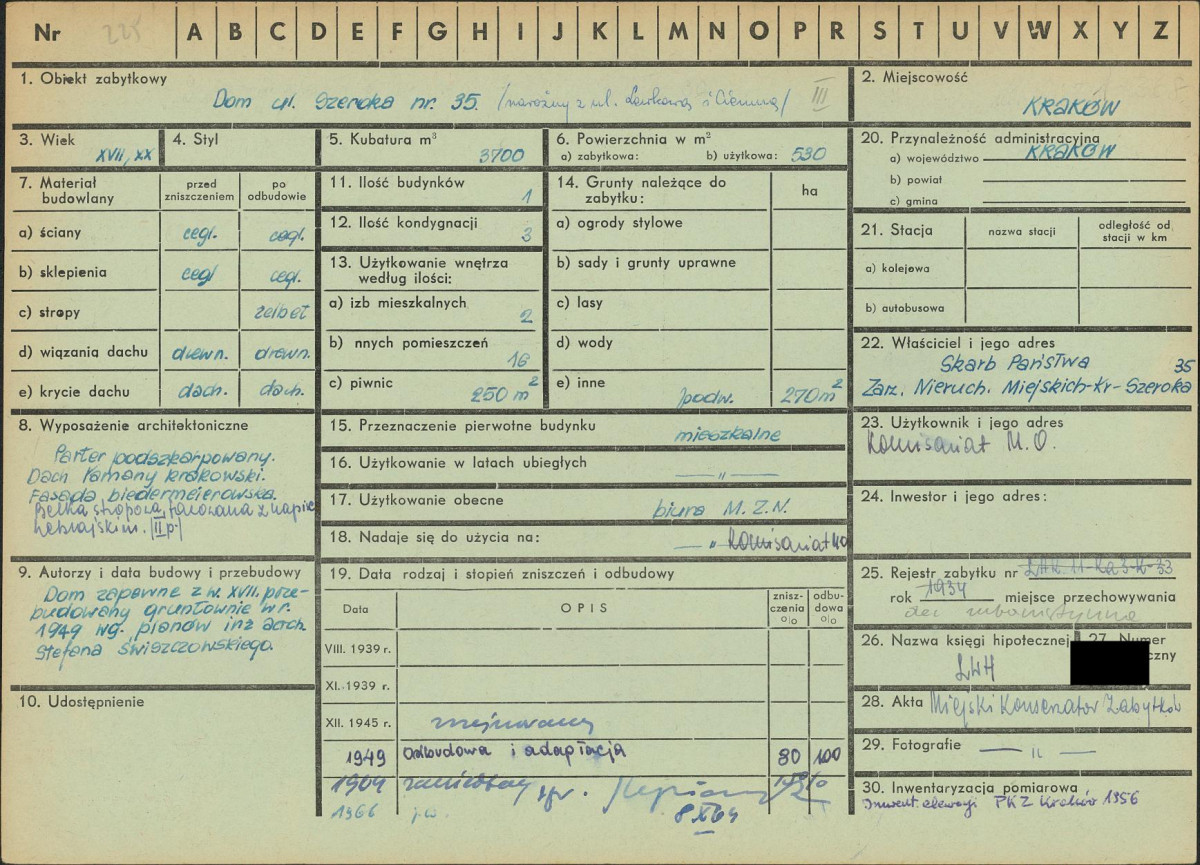 Nr 225 A B C D E F G H I J K L M N O P R S T U V W X Y Z
1. Obiekt zabytkowy
Dom ul. Szeroka nr. 35. /narożny z ul. i Ciemną/ III
2. Miejscowość
KRAKÓW
3. Wiek
XVII, XX
4. Styl
5. Kubatura m³
3700
6. Powierzchnia w m²
a) zabytkowa: b) użytkowa: 530
7. Materiał budowlany
przed zniszczeniem
po odbudowie
a) ściany cegl. cegl.
b) sklepienia cegl cegl.
c) stropy żelbet
d) wiązania dachu drewn. drewn.
e) krycie dachu dach. dach.
8. Wyposażenie architektoniczne
Parter podszkarpowany.
Dach łamany krakowski.
Fasada biedermeierowska.
Belka stropowa z napis
hebrajskim. /II p./
9. Autorzy i data budowy i przebudowy
Dom zapewne z w. XVII. prze-
budowany gruntownie w r.
1949 wg. planów inż arch.
Stefana Świszczowskiego.
10. Udostępnienie
11. Ilość budynków
1
12. Ilość kondygnacji
3
13. Użytkowanie wnętrza
według ilości:
a) izb mieszkalnych
2
b) nnych pomieszczeń
16
c) piwnic
250 m²
14. Grunty należące do
zabytku:
ha
a) ogrody stylowe
b) sady i grunty uprawne
c) lasy
d) wody
e) inne
podw. 270 m²
15. Przeznaczenie pierwotne budynku
mieszkalne
16. Użytkowanie w latach ubiegłych
— „ —
17. Użytkowanie obecne
biura M. Z. N.
18. Nadaje się do użycia na:
— „ Komisariat MO
19. Data rodzaj i stopień zniszczeń i odbudowy
Data
OPIS
znisz-
czenia
%
odbu-
dowa
%
VIII. 1939 r.
XI. 1939 r.
XII. 1945 r.
1949 Odbudowa i adaptacja 80 100
1964
8 XI 64
1966 j.w.
20. Przynależność administracyjna
a) województwo KRAKÓW
b) powiat
c) gmina
21. Stacja
nazwa stacji
odległość od
stacji w km
a) kolejowa
b) autobusowa
22. Właściciel i jego adres
Skarb Państwa 35
Zarz. Nieruch. Miejskich-Kr-Szeroka
23. Użytkownik i jego adres
Komisariat M. O.
24. Inwestor i jego adres:
25. Rejestr zabytku nr
rok 1934 miejsce przechowywania
dec urbanistyczna
26. Nazwa księgi hipotecznej
LWH
27. Numer
czny
28. Akta Miejski Konserwator Zabytków
29. Fotografie — „ —
30. Inwentaryzacja pomiarowa
Inwent. elewacji PKZ Kraków 1956